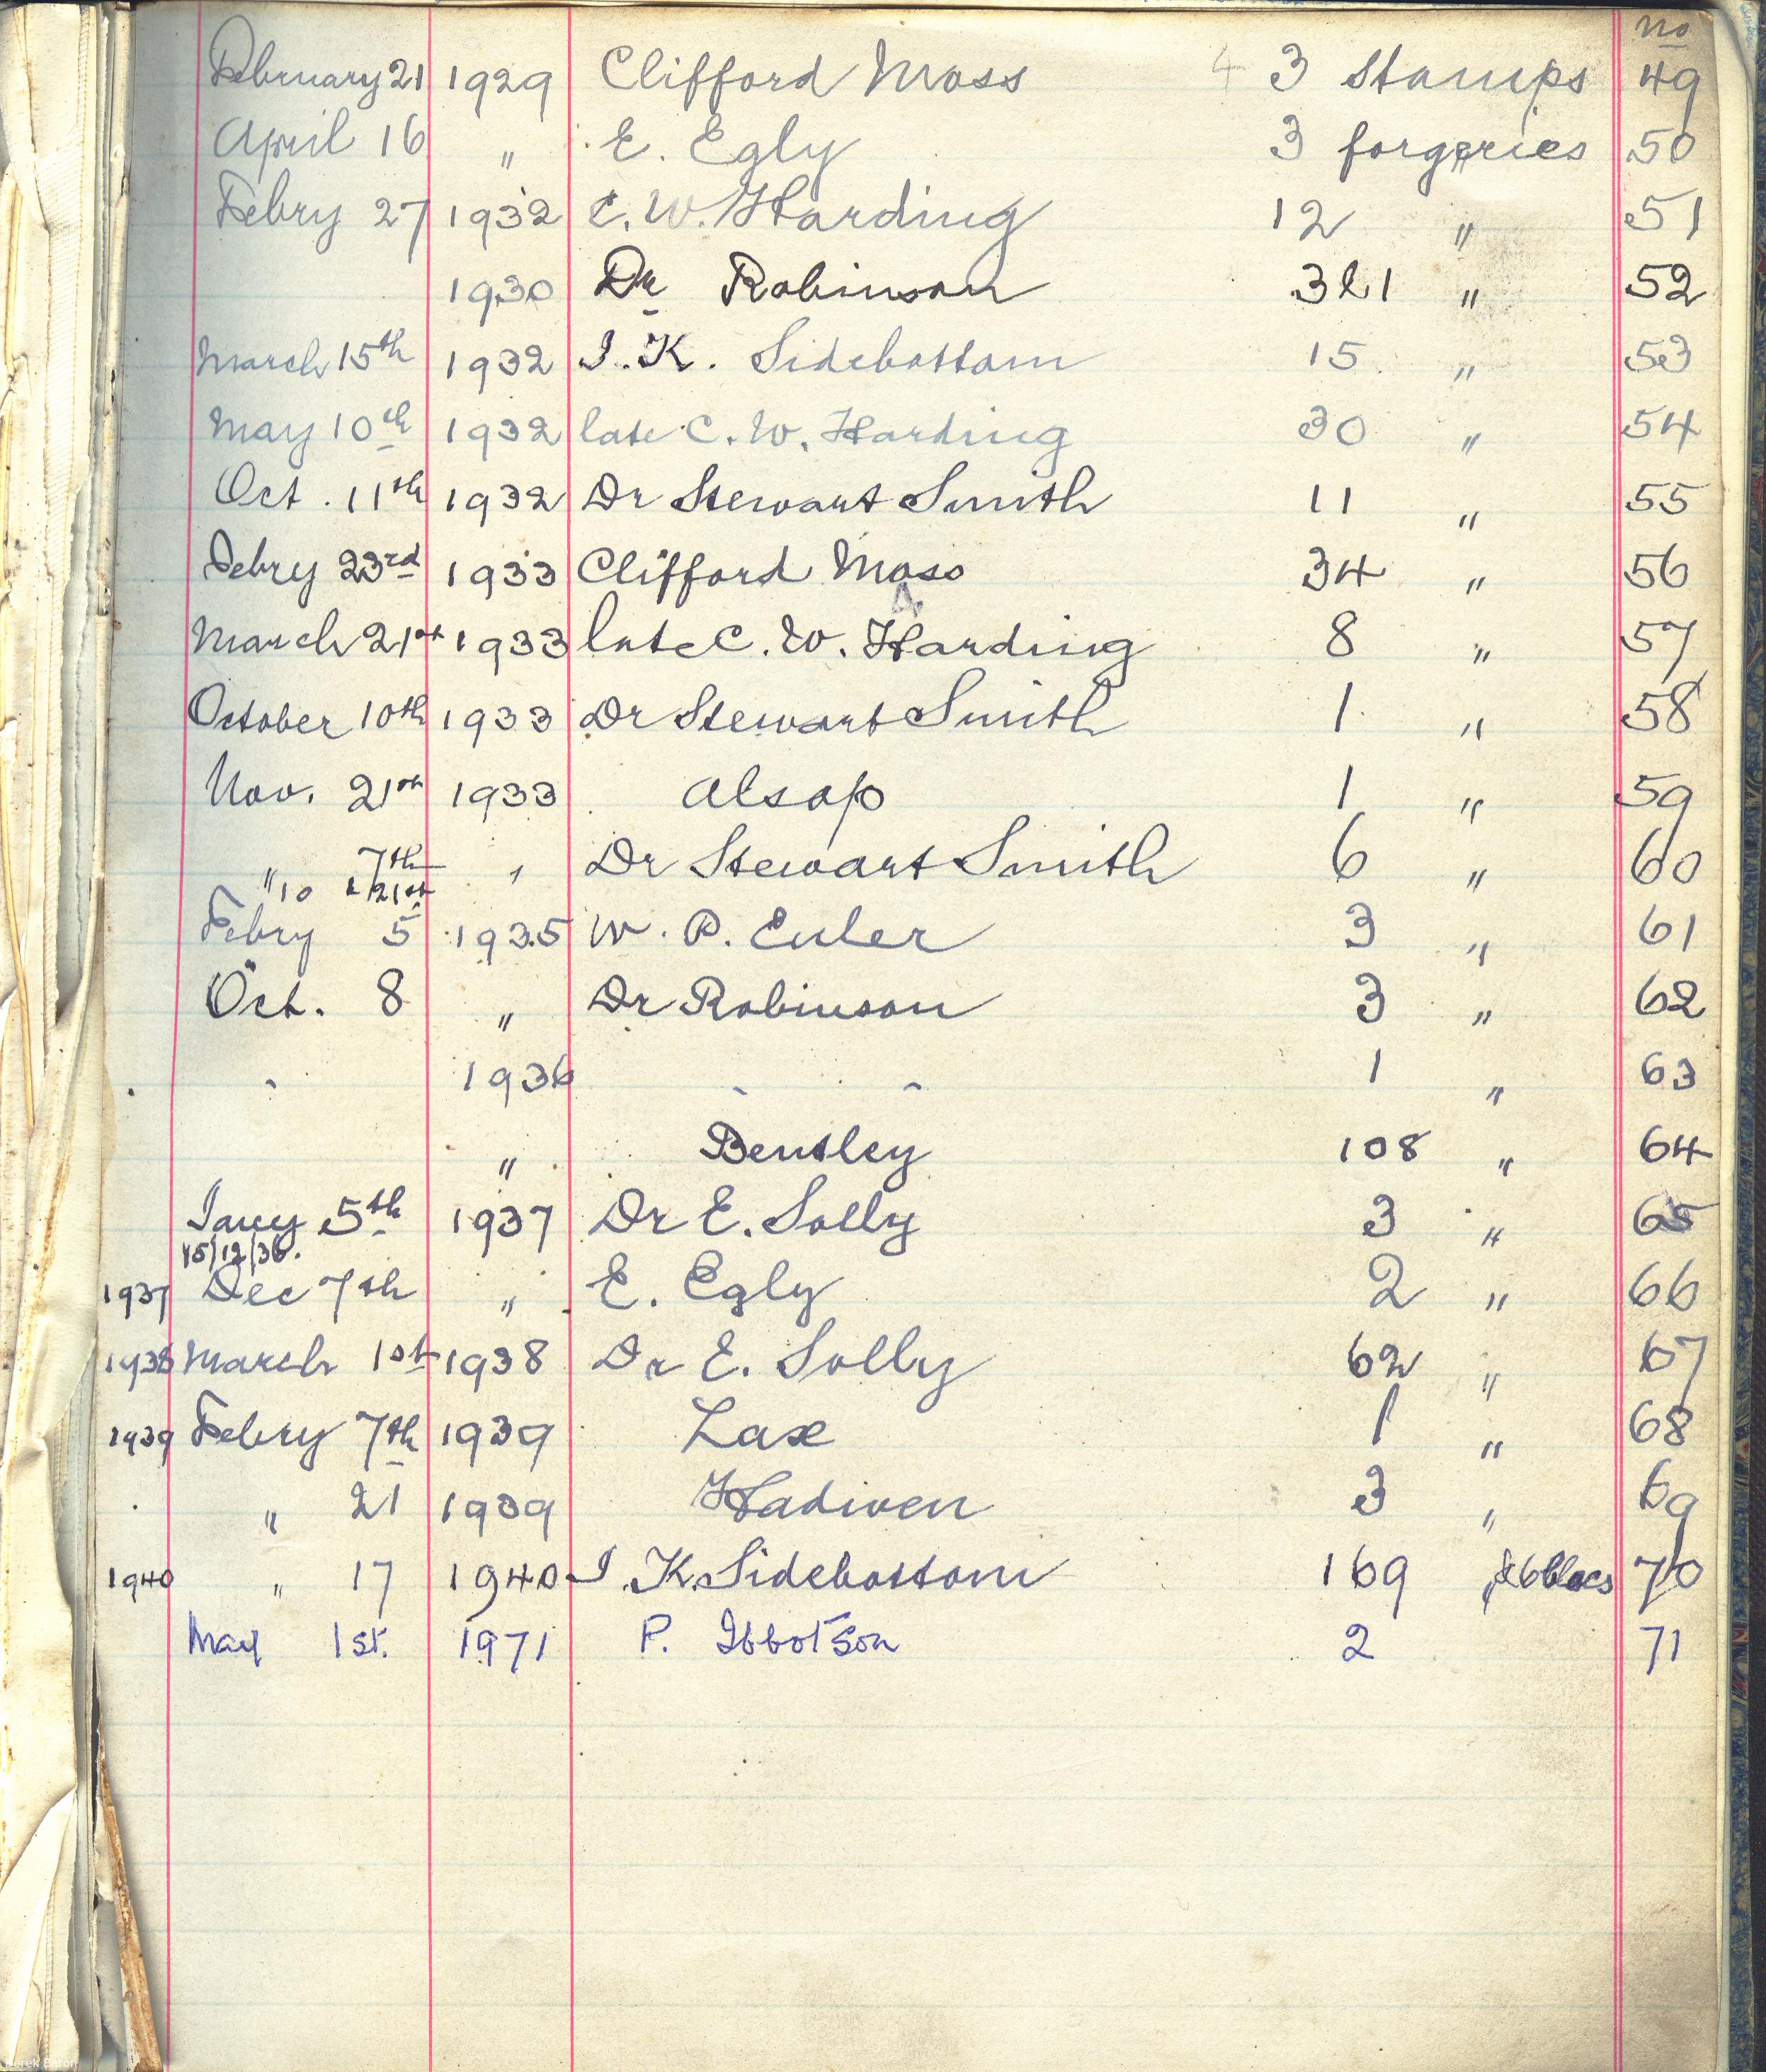 No
February 21 1929 Clifford Moss 4 3 Stamps 49
April 16 " E. Egly 3 forgeries 50
Febry 27 1932 C. W. Harding 12 " 51
1930 Dr Robinson 321 " 52
March 15th 1932 J. K. Sidebottom 15 " 53
May 10th 1932 late C. W. Harding 30 " 54
Oct. 11th 1932 Dr Stewart Smith 11 " 55
Febry 23rd 1933 Clifford Moss 34 " 56
March 21st 1933 late C. W. Harding 8 " 57
October 10th 1933 Dr Stewart Smith 1 " 58
Nov. 21st 1933 Alsop 1 " 59
" 10 7th & 21st " Dr Stewart Smith 6 " 60
Febry 5 1935 W. P. Euler 3 " 61
Oct. 8 " Dr Robinson 3 " 62
1936 1 " 63
" Bentley 108 " 64
Jany 5th 1937 Dr E. Solly 3 " 65
15/12/36.
1937 Dec 7th " E. Egly 2 " 66
1938 March 1st 1938 Dr E. Solly 62 " 67
1939 Febry 7th 1939 Lax 1 " 68
" 21 1939 Hadwen 3 " 69
1940 " 17 1940 J. K. Sidebottom 169 " & 6 blocs 70
May 1st. 1971 P. Ibbotson 2 71
Derek Baron